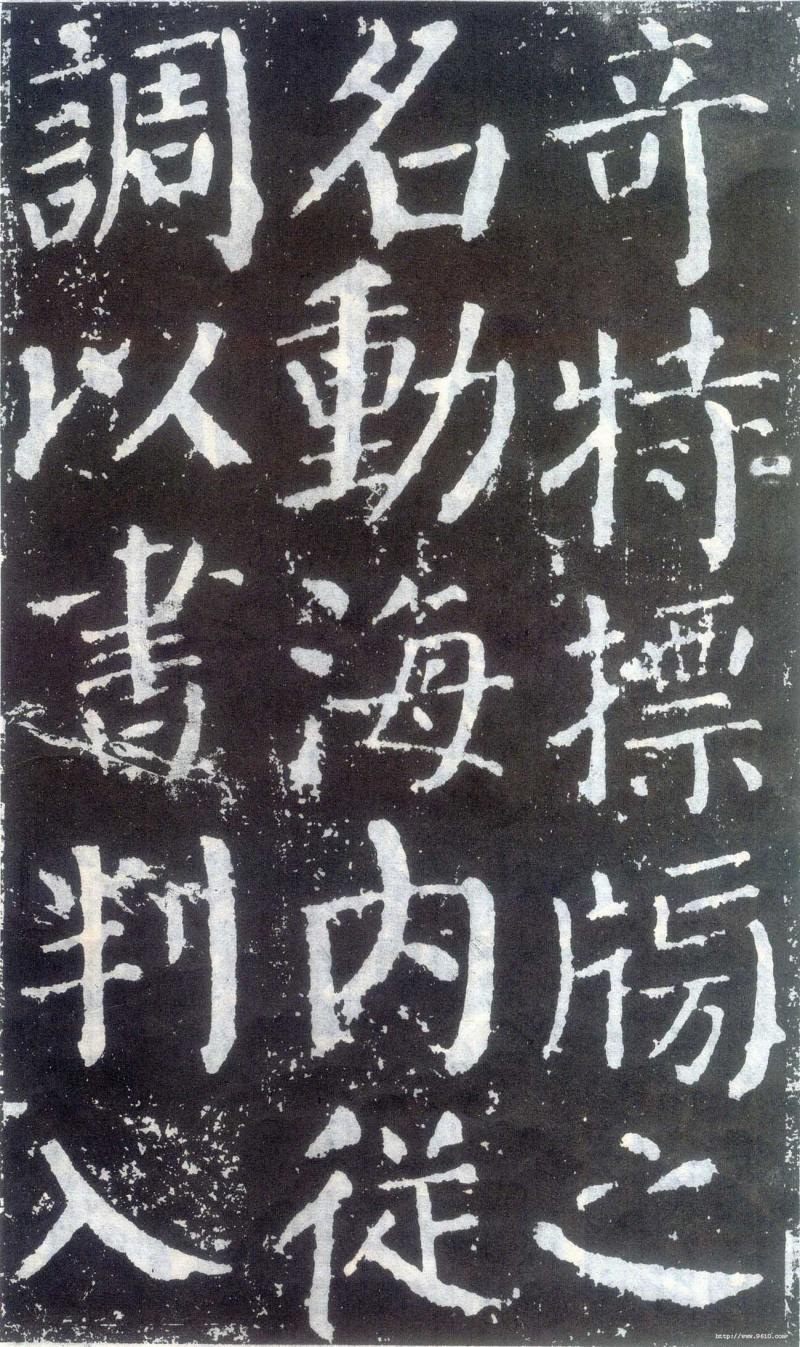 竒特標牓之
名動海內從
調以書判入
http://www.9610.com